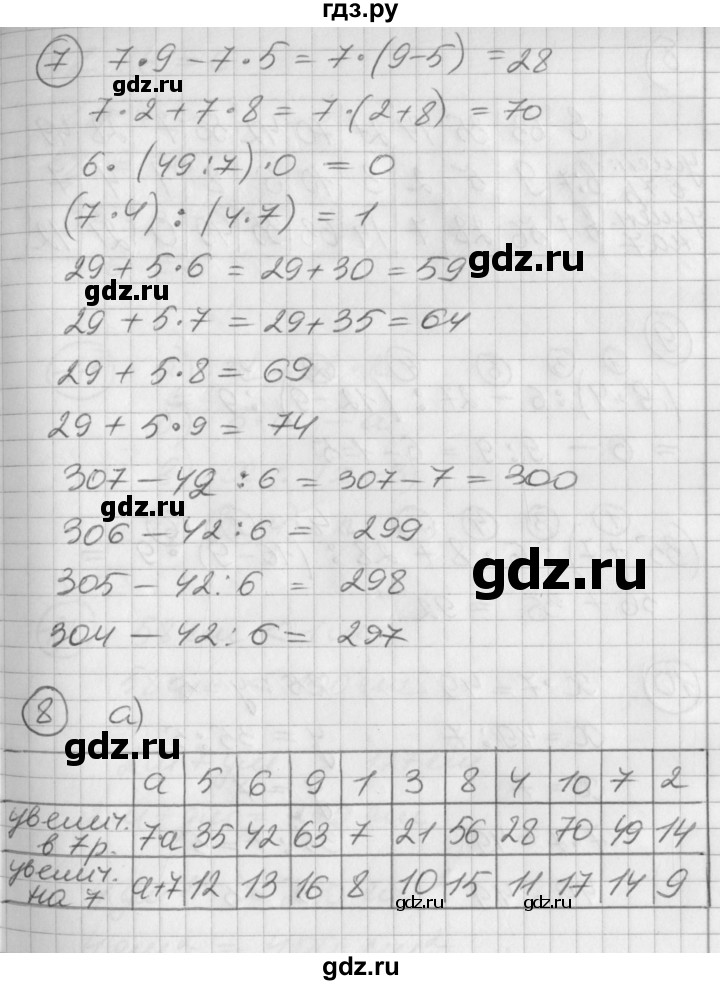 гдз.ру
7 7·9 – 7·5 = 7·(9–5) = 28
gdz.ru
7·2 + 7·8 = 7·(2+8) = 70
6·(49:7)·0 = 0
(7·4) : (4·7) = 1
29 + 5·6 = 29+30 = 59
gdz.ru
gdz.ru
29 + 5·7 = 29+35 = 64
29 + 5·8 = 69
29 + 5·9 = 74
307 – 42 : 6 = 307–7 = 300
gdz.ru
306 – 42:6 = 299
305 – 42:6 = 298
gdz.ru
304 – 42:6 = 297
8 а)
gdz.ru
а 5 6 9 1 3 8 4 10 7 2
увелич. в 7р. 7а 35 42 63 7 21 56 28 70 49 14
увелич. на 7 а+7 12 13 16 8 10 15 11 17 14 9
gdz.ru gdz.ru
gdz.ru